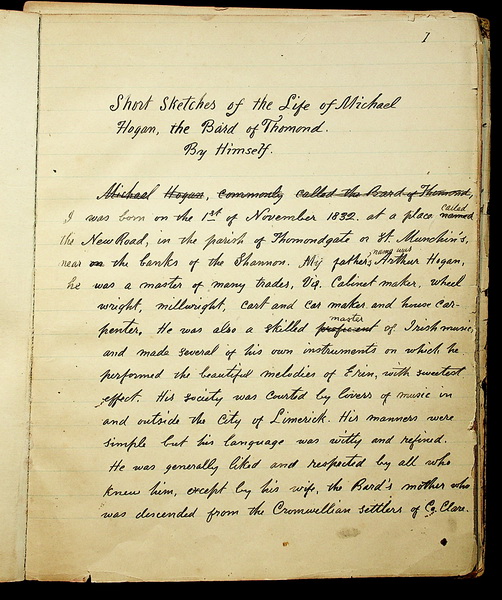 1
Short Sketches of the Life of Michael
Hogan, the Bard of Thomond.
By Himself.
Michael Hogan, commonly called the Bard of Thomond,
I was born on the 1st of November 1832. at a place named called
the New Road, in the parish of Thomondgate or St. Munchin's,
near on the banks of the Shannon. My father's name was Arthur Hogan,
he was a master of many trades, Viz. Cabinet maker, wheel
wright, millwright, cart and car maker and house car-
penter. He was also a skilled proficient master of Irish music,
and made several of his own instruments on which he
performed the beautiful melodies of Erin, with sweetest
effect. His society was courted by lovers of music in
and outside the City of Limerick. His manners were
simple but his language was witty and refined.
He was generally liked and respected by all who
knew him, except by his wife, the Bard's mother who
was descended from the Cromwellian settlers of Co. Clare.